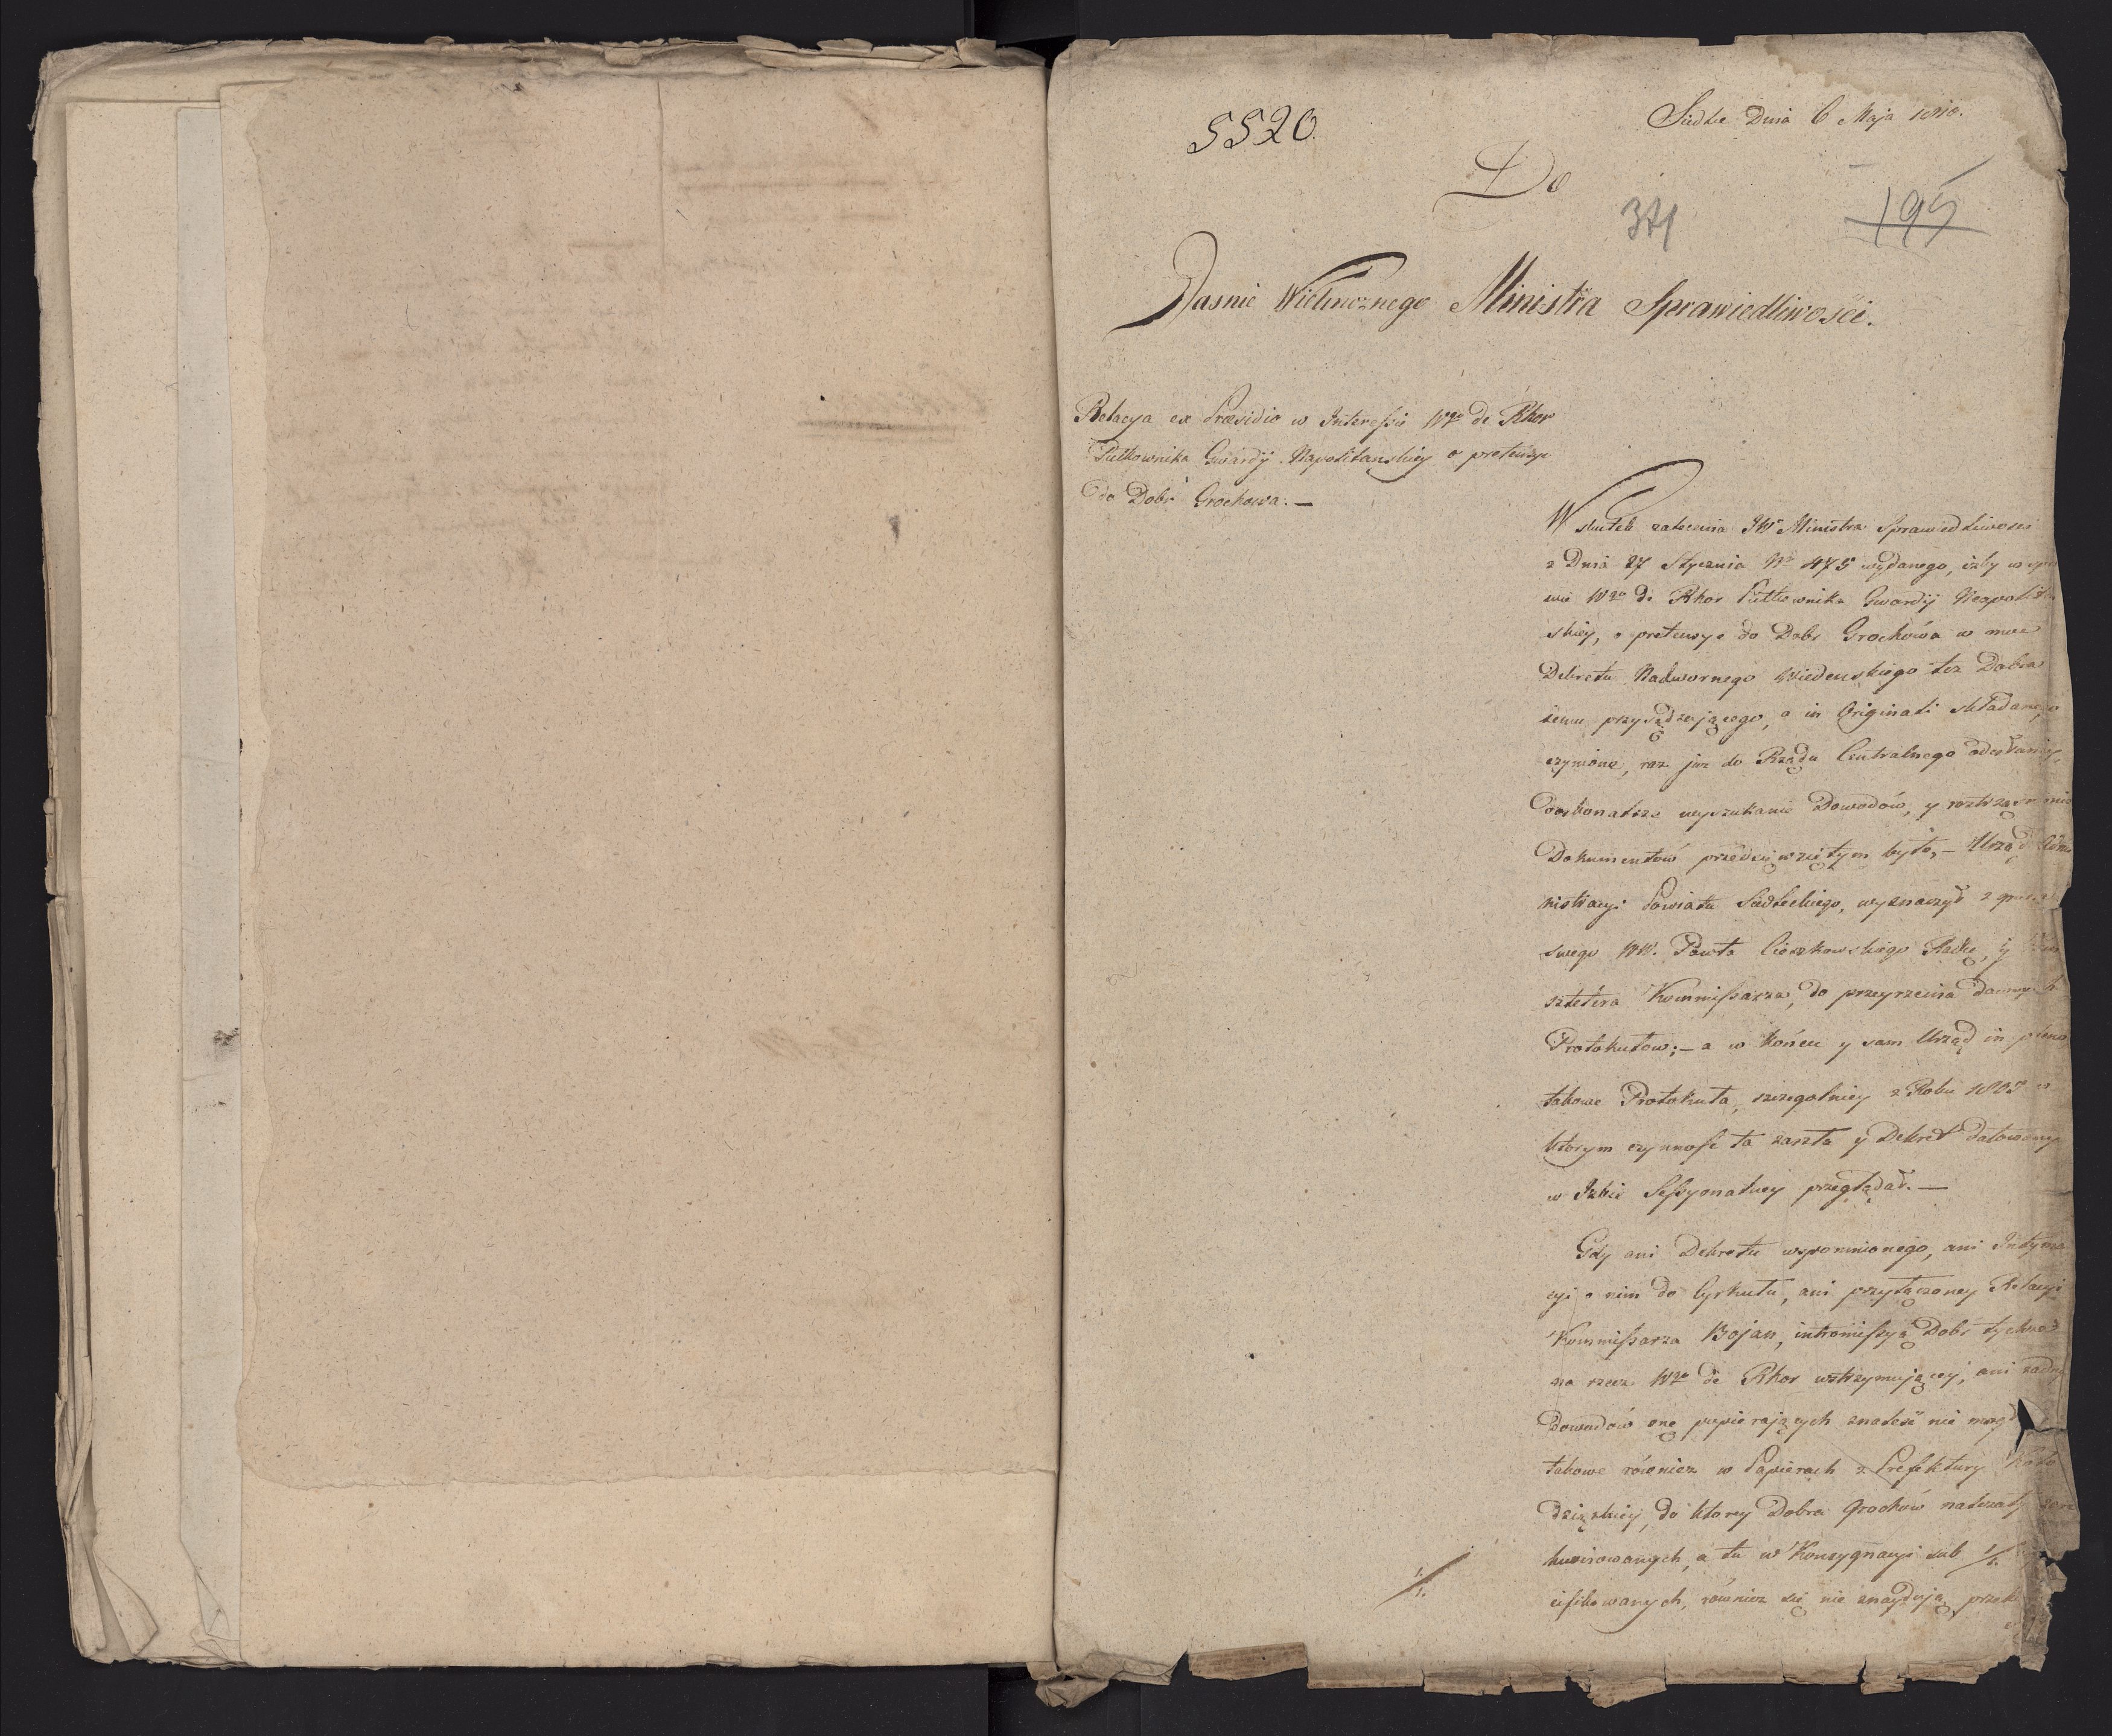 5520.
Siedlce Dnia 6 Maja 1810.
Do
371
195
Jasnie Wielmoznego Ministra Sprawiedliwości.
Relacya ex Præsidio w Interessie Wgo de Rhor
Pułkownika Gwardyi Napolitanskiey o pretensye
do Dobr Grochowa. —
W skutek zalecenia JW. Ministra Sprawiedliwosci
z Dnia 27 Stycznia No 475 wydanego, izby w
wie Wgo de Rhor Pułkownika Gwardyi Neapolitan
skiey, o pretensye do Dobr Grochowa w moc
Dekretu Nadwornego Wiedenskiego tez Dobra
temu przysądzającego, a in Originali składanego
czynione, raz juz do Rządu Centralnego odesłaney,
doskonalsze wyszukanie Dowodów, y roztrząsnienie
Dokumentów przedsięwziętym było, — Urząd Admi
nistracyi Powiatu Siedleckiego, wyznaczył z grona
swego WW. Pawła Cieszkowskiego Radcę, y
Kommissarza, do przeyrzenia dawnych
Protokułow; — a w końcu y sam Urząd in pleno
takowe Protokuła, szczegolniey z Roku 1803 w
ktorym czynność ta zaszła y Dekret datowany
w Izbie Sessyonalney przeglądał. —
Gdy ani Dekretu wspomnionego, ani Intyma
cyi o nim do Cyrkułu, ani przyłączoney Relacyi
Kommissarza Bojan, intromissyą Dobr tychze
na rzecz Wgo de Rhor wstrzymującey, ani zadnych
Dowodów onę popierających znalesć nie mogł
takowe rowniez w Papierach z Prefektury
do ktorey Dobra Grochów nalezały
a tu w Konsygnacyi sub 1/1.
1/1.
cifikowanych, rowniez się nie znaydują,